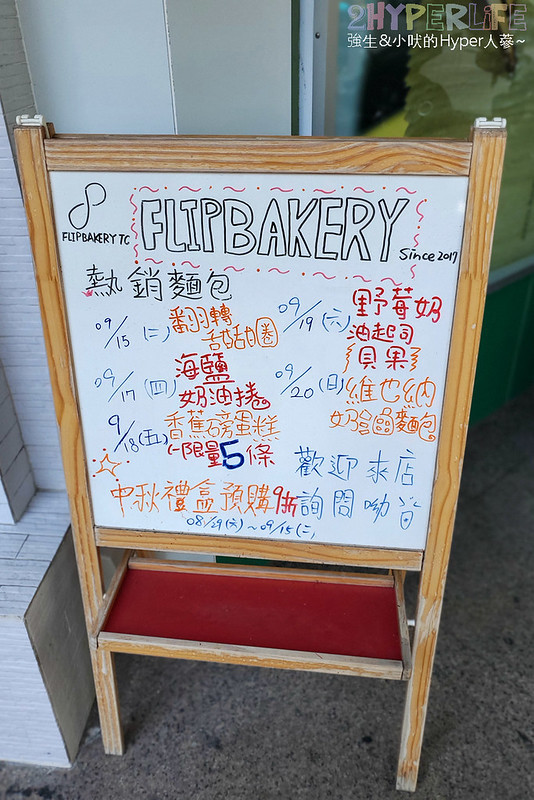 2HYPERLIFE
強生&小吠的Hyper人蔘~
FLIPBAKERY TC
FLIPBAKERY
Since 2017
熱銷麵包
09/15(二)
翻羽轉
甜甜圈
09/17(四)
海鹽
奶油捲
9/18(五)
香蕉磅蛋糕
限量5條
09/19(六)
野莓奶
油起司
貝果
09/20(日)
維也納
奶油麵包
歡迎來店
詢問呦
中秋禮盒預購9折
08/29(六)~09/15(二)